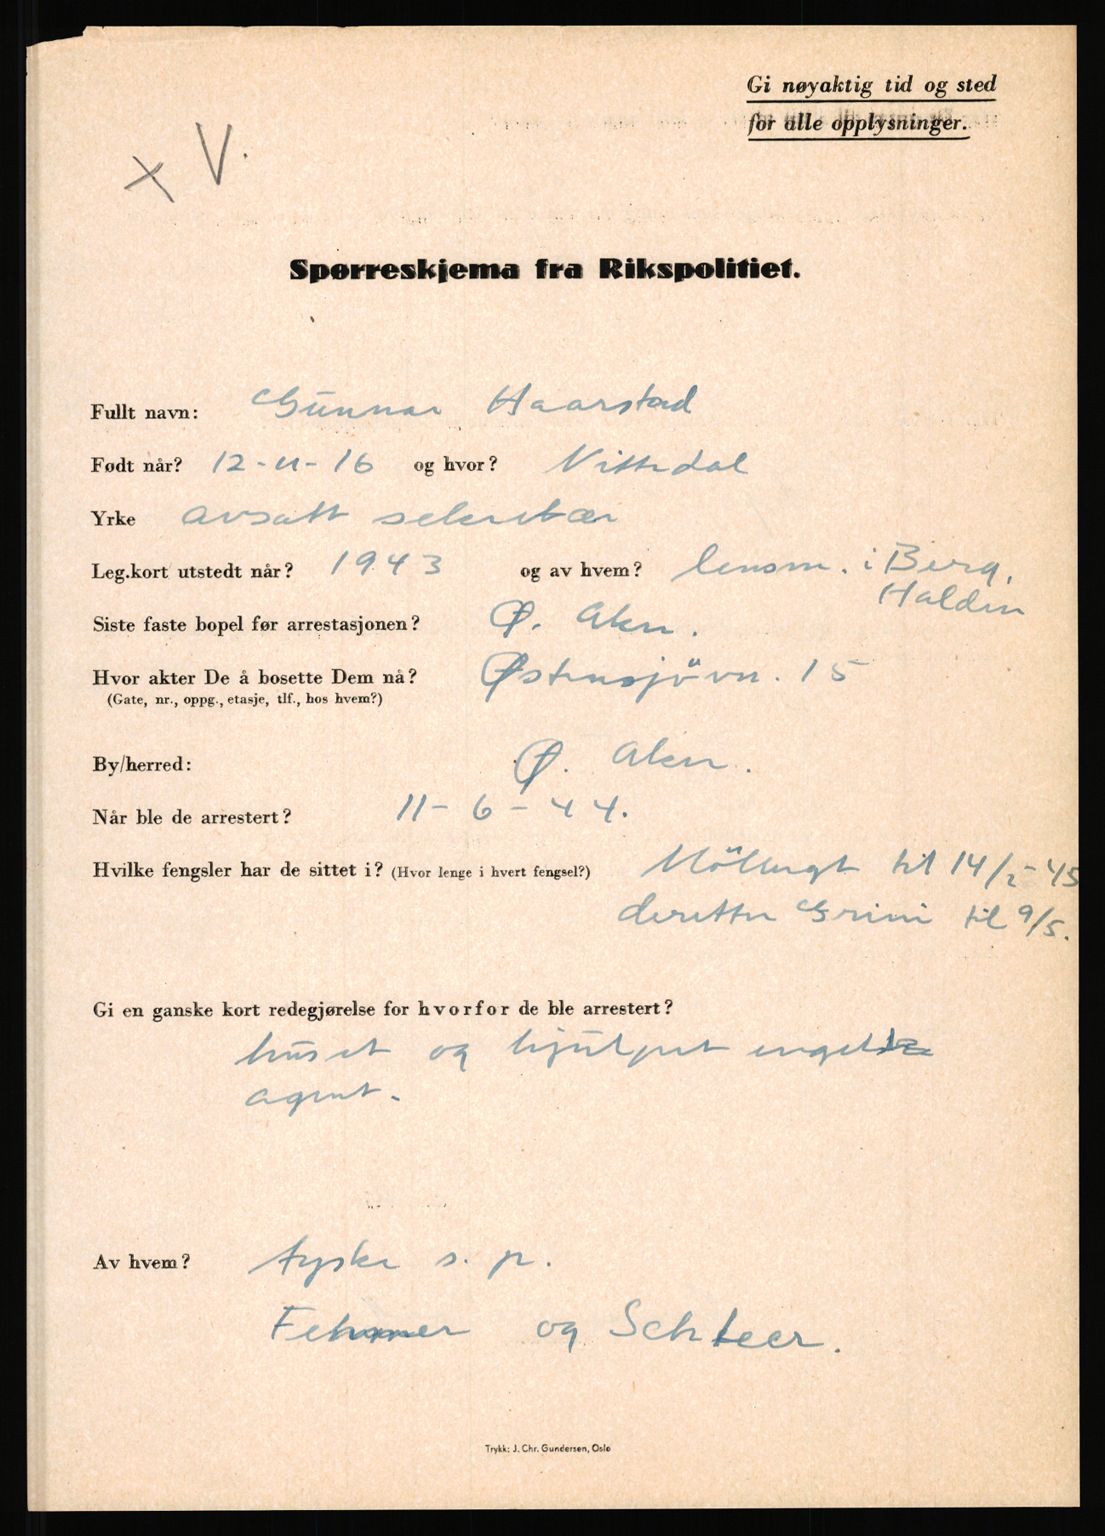 Gi nøyaktig tid og sted
for alle opplysninger.
x V.
Spørreskjema fra Rikspolitiet.
Fullt navn: Gunnar Haarstad
Født når? 12-11-16 og hvor? Nittedal
Yrke avsatt sekretær
Leg.kort utstedt når? 1943 og av hvem? lensm. i Berg,
Halden
Siste faste bopel før arrestasjonen? Ø. Aker.
Hvor akter De å bosette Dem nå? Østensjövn. 15
(Gate, nr., oppg., etasje, tlf., hos hvem?)
By/herred: Ø. Aker.
Når ble de arrestert? 11-6-44.
Hvilke fengsler har de sittet i? (Hvor lenge i hvert fengsel?) Möllergt til 14/2-45
deretter Grini til 9/5.
Gi en ganske kort redegjørelse for hvorfor de ble arrestert?
huset og hjulpet engelsk
agent.
Av hvem? tyske s. p.
Fehmer og
Trykk: J. Chr. Gundersen, Oslo